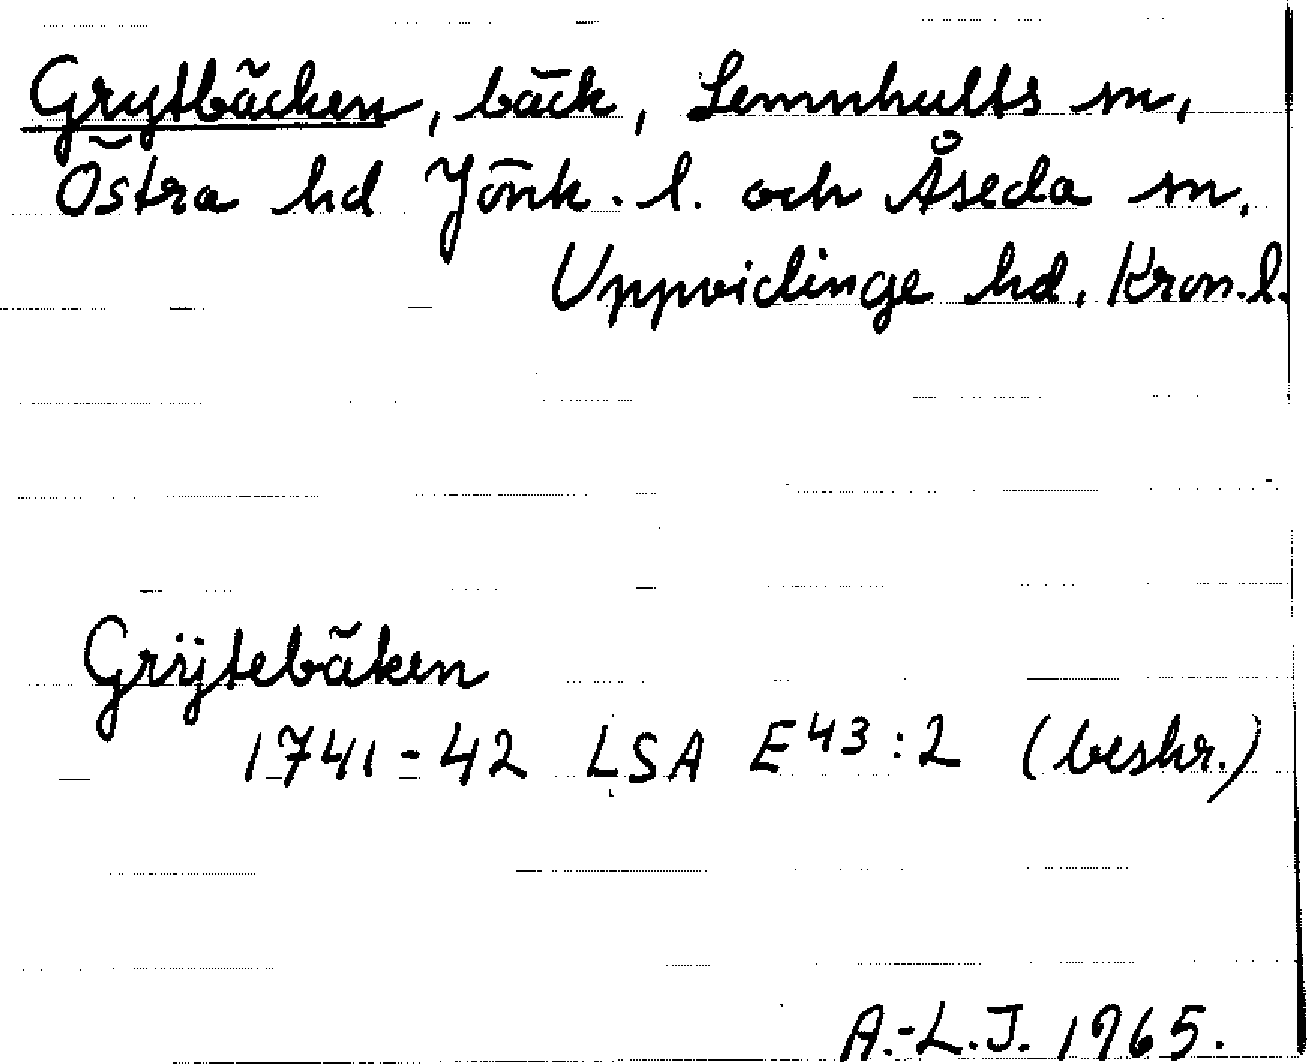 Grytbäcken, bäck, Lemnhults sn,
Östra hd Jönk. l. och Åseda sn.
Uppvidinge hd, Kron. l.
Grÿtebäken
1741-42 LSA E43:2 (beskr.)
A.-L.J. 1965.